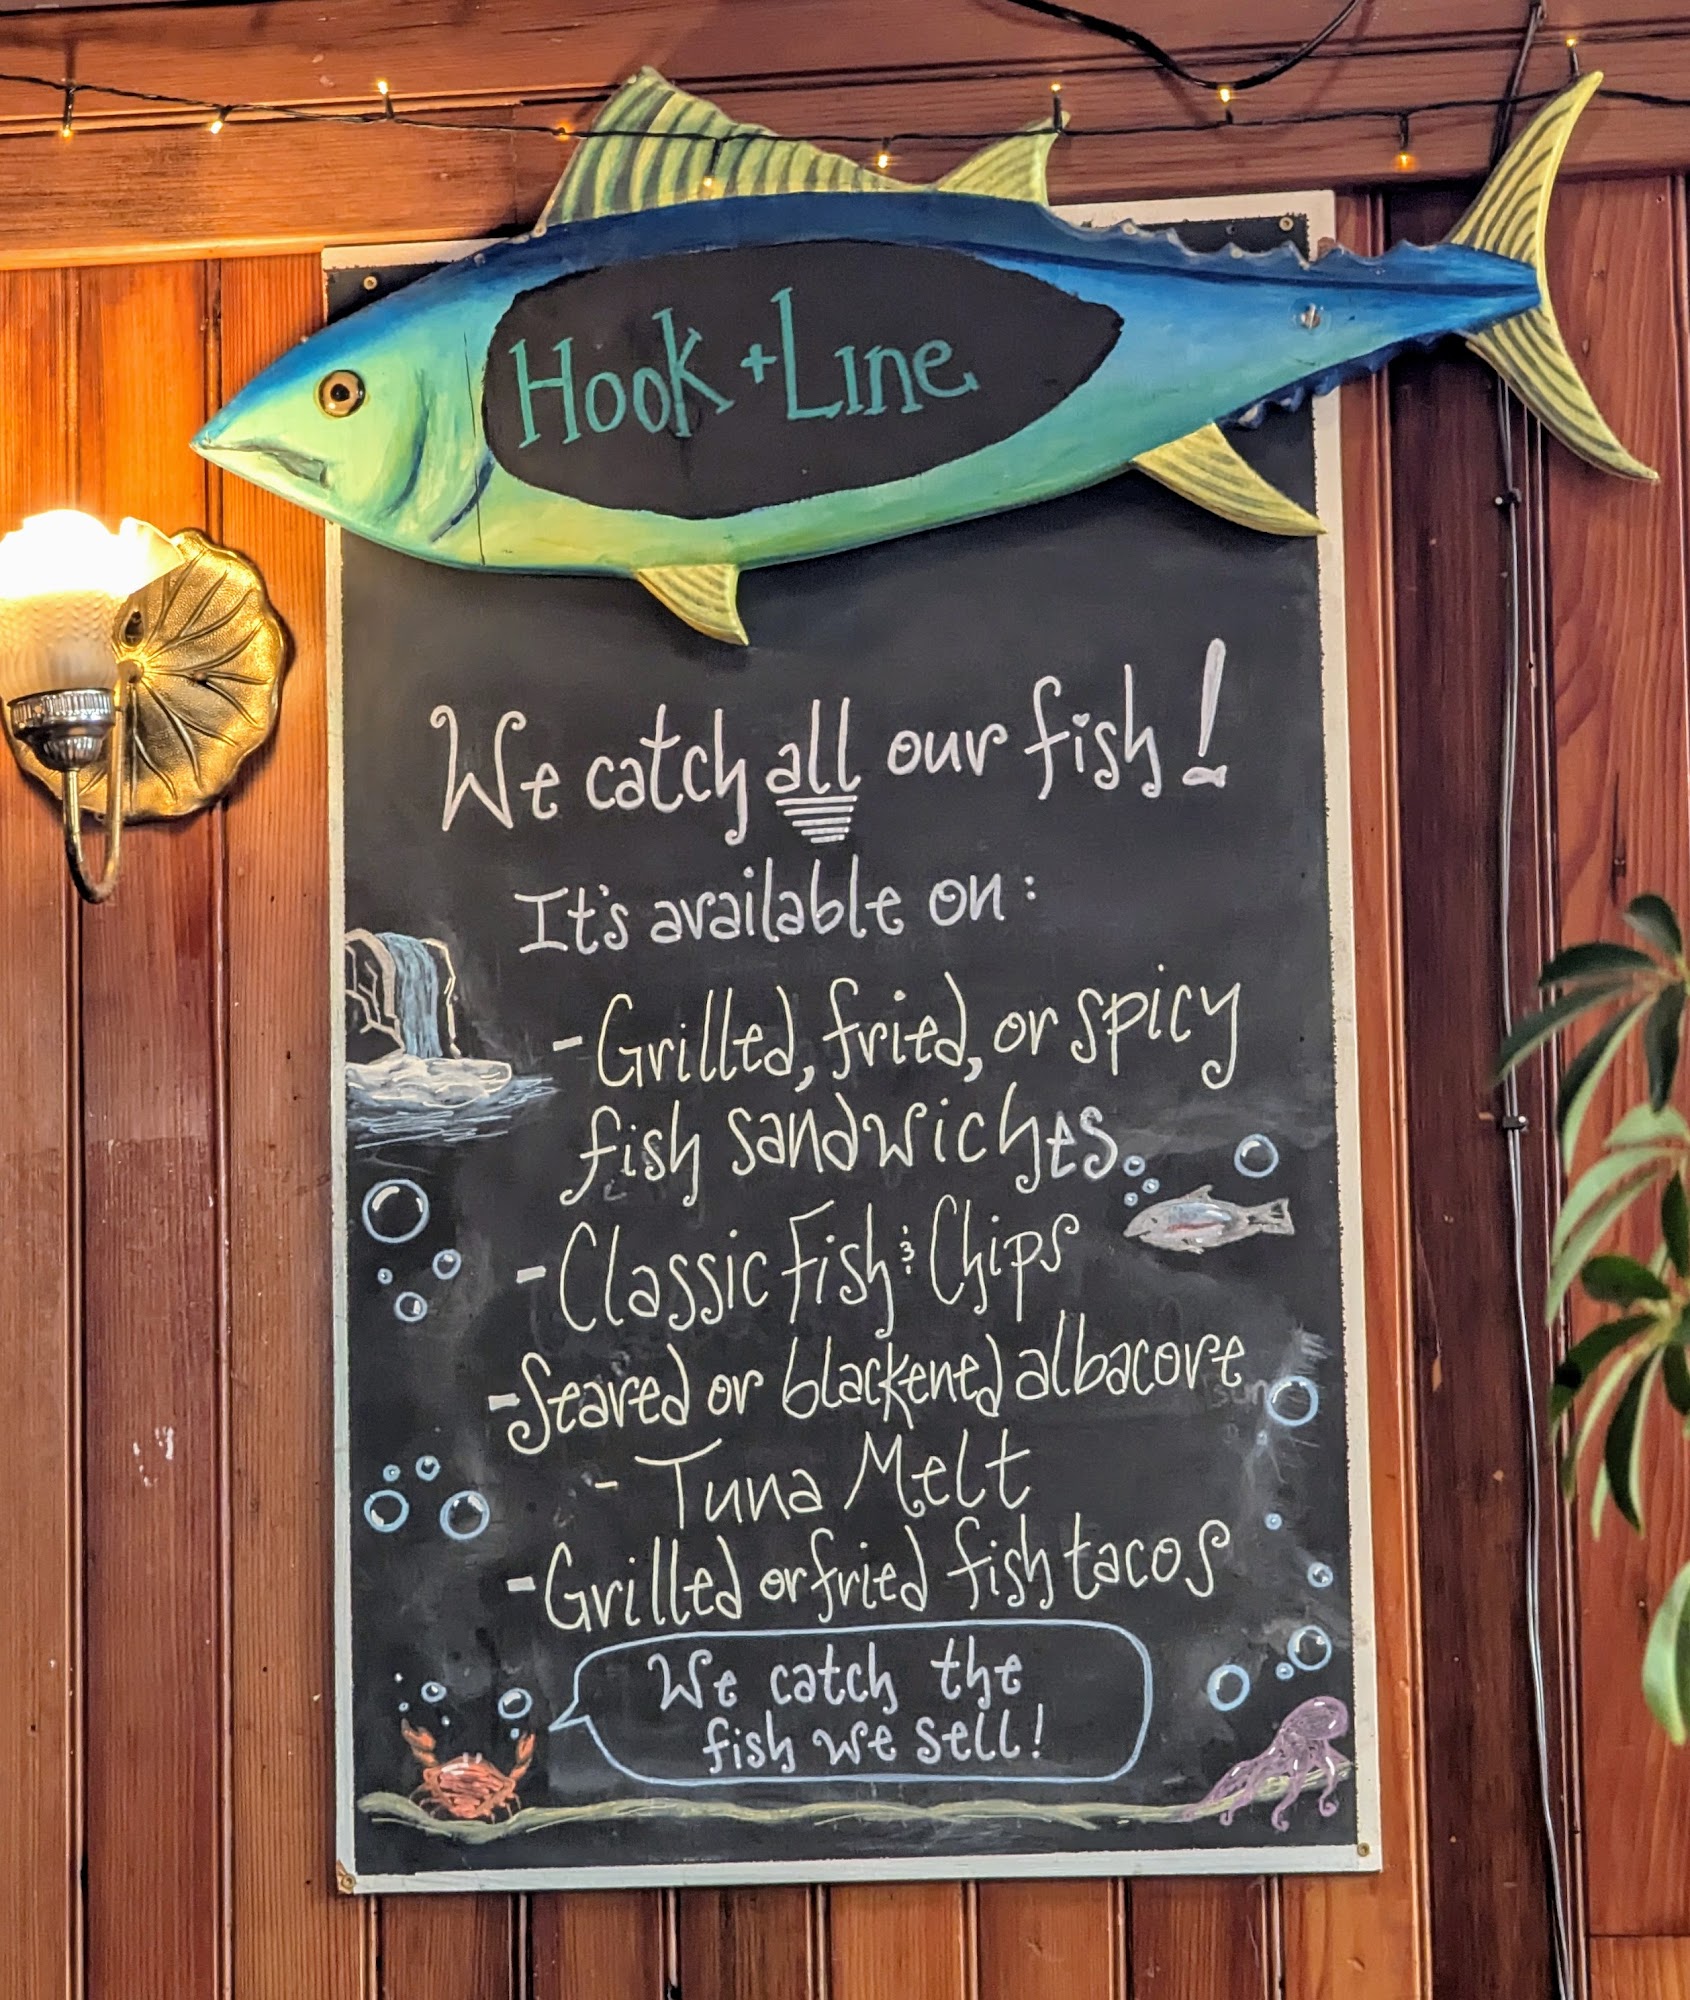 Hook + Line
We catch all our fish!
It's available on:
- Grilled, fried, or spicy
fish sandwiches
- Classic Fish & Chips
- Seared or blackened albacore
- Tuna Melt
- Grilled or fried fish tacos
We catch the
fish we sell!